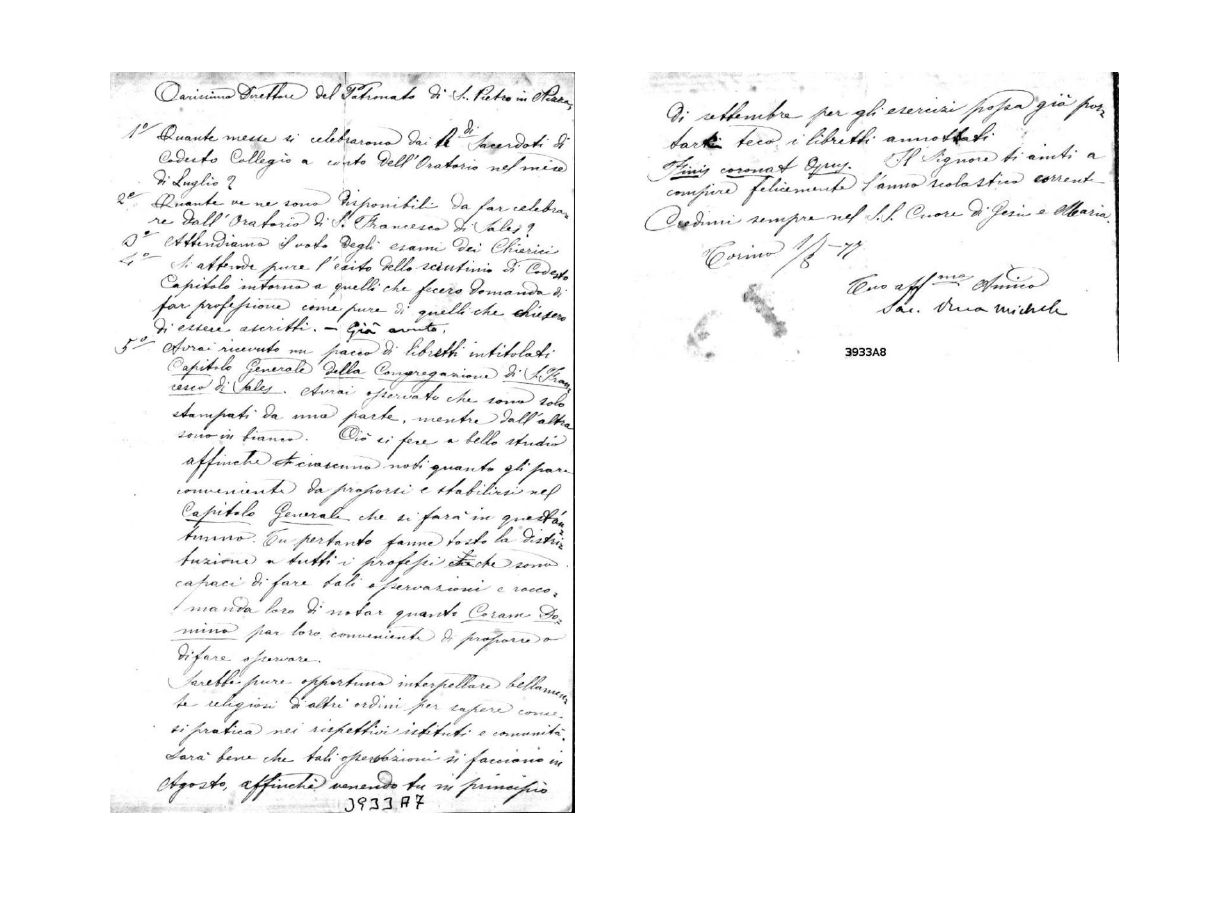 Carissimo Direttore del Patronato di S. Pietro in Nizza,
1º Quante messe si celebrarono dai Rdi Sacerdoti di
Codesto Collegio a conto dell'Oratorio nel mese
di Luglio?
2º Quante ve ne sono disponibili da far celebra-
re dall'Oratorio di S. Francesco di Sales?
3º Attendiamo il voto degli esami dei Chierici
4º Si attende pure l'esito dello scrutinio di Codesto
Capitolo intorno a quelli che fecero domanda di
far professione come pure di quelli che chiesero
di essere ascritti. — Già avuto.
5º Avrai ricevuto un pacco di libretti intitolati
Capitolo Generale della Congregazione di S. Fran-
cesco di Sales. Avrai osservato che sono solo
stampati da una parte, mentre dall'altra
sono in bianco. Ciò si fece a bello studio
affinchè ciascuno noti quanto gli pare
conveniente da proporsi e stabilirsi nel
Capitolo Generale che si farà in quest'au-
tunno. Tu pertanto fanne tosto la distri-
buzione a tutti i professi che sono
capaci di fare tali osservazioni e racco-
manda loro di notar quanto Coram Do-
mino par loro conveniente di proporre o
di fare osservare.
Sarebbe pure opportuno interpellare bellamen-
te religiosi d'altri ordini per sapere come
si pratica nei rispettivi istituti e comunità.
Sarà bene che tali osservazioni si facciano in
Agosto, affinchè venendo tu in principio
3933A7
di settembre per gli esercizi possa già por-
tare teco i libretti annottati
Finis coronat Opus. Il Signore ti aiuti a
compire felicemente l'anno scolastico corrente
Credimi sempre nel S.S. Cuore di Gesù e Maria.
Torino 1/8-77
Tuo affmo Amico
Sac. Rua Michele
3933A8